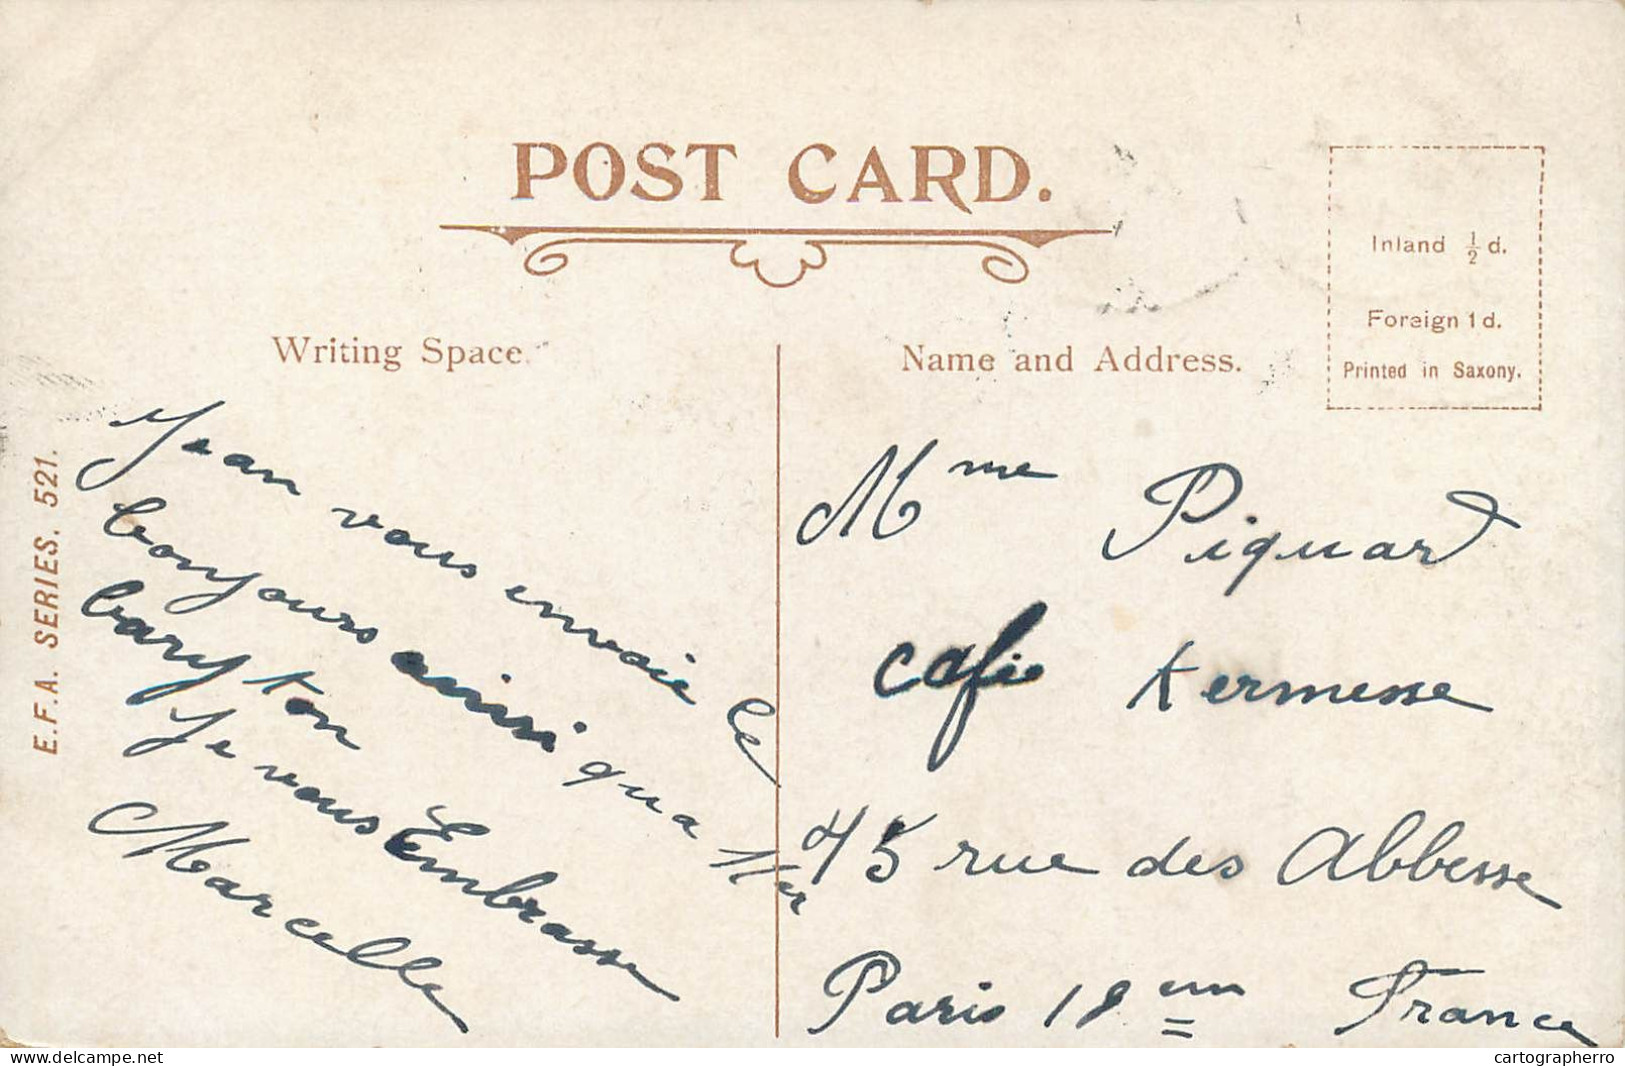 POST CARD.
Inland ½ d.
Foreign 1 d.
Printed in Saxony.
Writing Space.
Name and Address.
E.F.A. SERIES. 521.
Jean vous envoie le
bonjours ainsi qua Mer
baryton
Je vous Embrasse
Marcelle
Mme Piquard
cafe Kermesse
45 rue des Abbesse
Paris 18 em France
delcampe.net
cartographerro